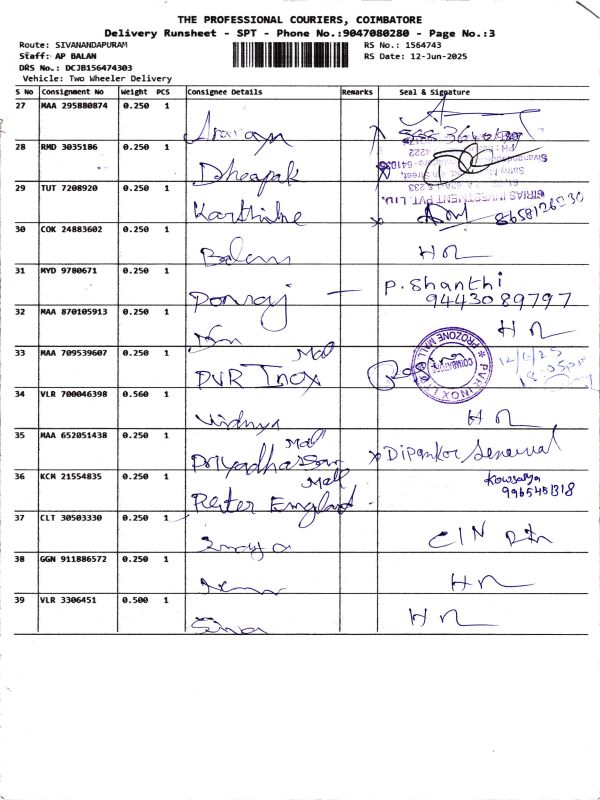 THE PROFESSIONAL COURIERS, COIMBATORE
Delivery Runsheet - SPT - Phone No.:9047080280 - Page No.:3
Route: SIVANANDAPURAM
RS No.: 1564743
Staff: AP BALAN
RS Date: 12-Jun-2025
DRS No.: DCJB156474303
Vehicle: Two Wheeler Delivery
S No Consignment No Weight PCS Consignee Details Remarks Seal & Signature
27 MAA 295880874 0.250 1
28 RMD 3035186 0.250 1 Dheepak
29 TUT 7208920 0.250 1
30 COK 24883602 0.250 1 Balam
31 MYD 9780671 0.250 1 Ponraj — P. Shanthi
9443089797
32 MAA 870105913 0.250 1
33 MAA 709539607 0.250 1 PVR Inox Mall
PVR INOX PROZONE MALL COIMBATORE
34 VLR 700046398 0.560 1 Vidhya
35 MAA 652051438 0.250 1 Mall Dipankar
36 KCM 21554835 0.250 1 Peter England Mall Kowsalya
9965451318
37 CLT 30503330 0.250 1
38 GGN 911886572 0.250 1
39 VLR 3306451 0.500 1 Siva